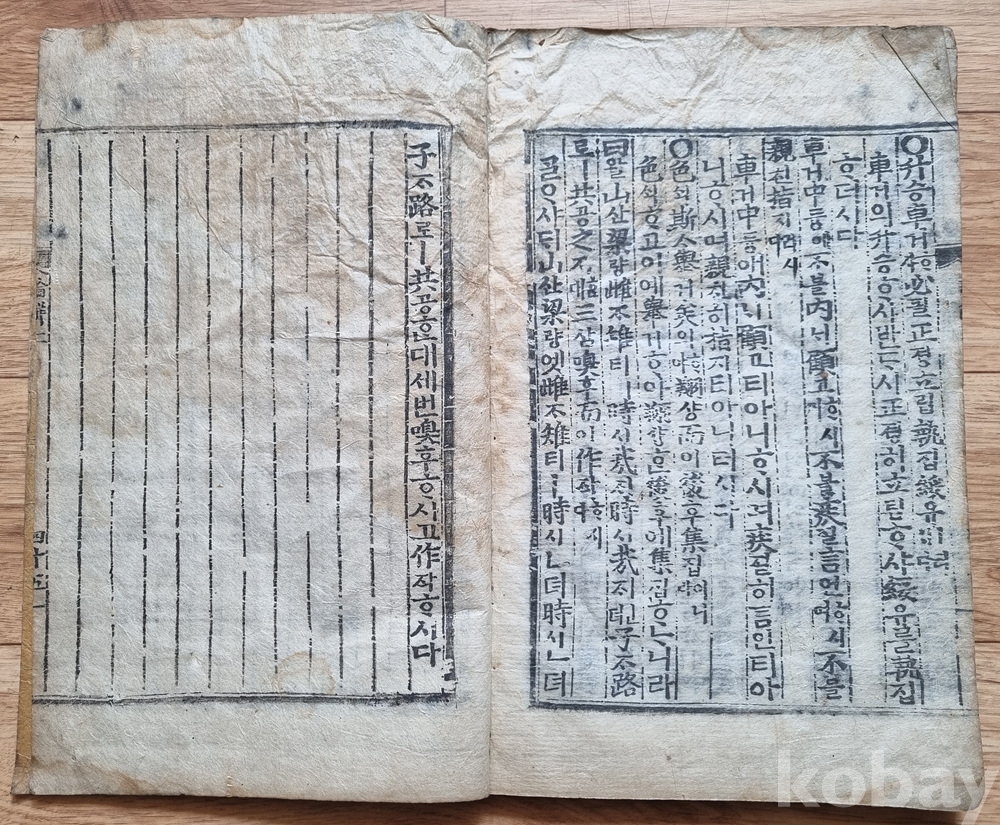 ○升승車거ᄒᆞ샤必필正졍立립執집綏유ㅣ러시다
車거의升승ᄒᆞ샤반ᄃᆞ시正졍히立립ᄒᆞ샤綏유를執집
ᄒᆞ더시다
車거中듕애不블內ᄂᆡ顧고ᄒᆞ시며不블疾질言언ᄒᆞ시며不블
親친指지러시다
車거中듕애內ᄂᆡ顧고티아니ᄒᆞ시며疾질히言언티아
니ᄒᆞ시며親친히指지티아니터시다
○色ᄉᆡᆨ斯ᄉᆞ擧거矣의翔샹而이後후集집이니
色ᄉᆡᆨ고이예擧거ᄒᆞ야翔샹ᄒᆞᆫ後후에集집ᄒᆞᄂᆞ니라
曰왈山산梁량雌ᄌᆞ雉티ㅣ時시哉ᄌᆡ時시哉ᄌᆡㄴ뎌子ᄌᆞ路
로ㅣ共공之지ᄒᆞᆫ대三삼嗅후而이作작ᄒᆞ시다
ᄀᆞᆯᄋᆞ샤ᄃᆡ山산梁량엣雌ᄌᆞ雉티ㅣ時시ㄴ뎌時시ㄴ뎌
子ᄌᆞ路로ㅣ共공ᄒᆞᆫ대세번嗅후ᄒᆞ시고作작ᄒᆞ시다
四十五
kobay